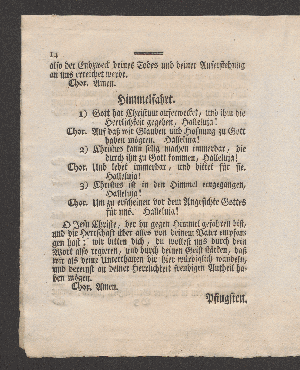 14
also der Endzweck deines Todes und deiner Auferstehung
an uns erreichet werde.
Chor. Amen.
Himmelfahrt.
1) Gott hat Christum auferwecket, und ihm die
Herrlichkeit gegeben, Halleluja!
Chor. Auf daß wir Glauben und Hofnung zu Gott
haben mögen. Halleluja!
2) Christus kann selig machen immerdar, die
durch ihn zu Gott kommen, Halleluja!
Chor. Und lebet immerdar, und bittet für sie.
Halleluja!
3) Christus ist in den Himmel eingegangen,
Halleluja!
Chor. Um zu erscheinen vor dem Angesichte Gottes
für uns. Halleluja!
O Jesu Christe, der du gegen Himmel gefahren bist,
und die Herrschaft über alles von deinem Vater empfan-
gen hast; wir bitten dich, du wollest uns durch dein
Wort also regieren, und durch deinen Geist stärken, daß
wir als deine Unterthanen dir hier würdiglich wandeln,
und dereinst an deiner Herrlichkeit freudigen Antheil ha-
ben mögen.
Chor. Amen.
Pfingsten.